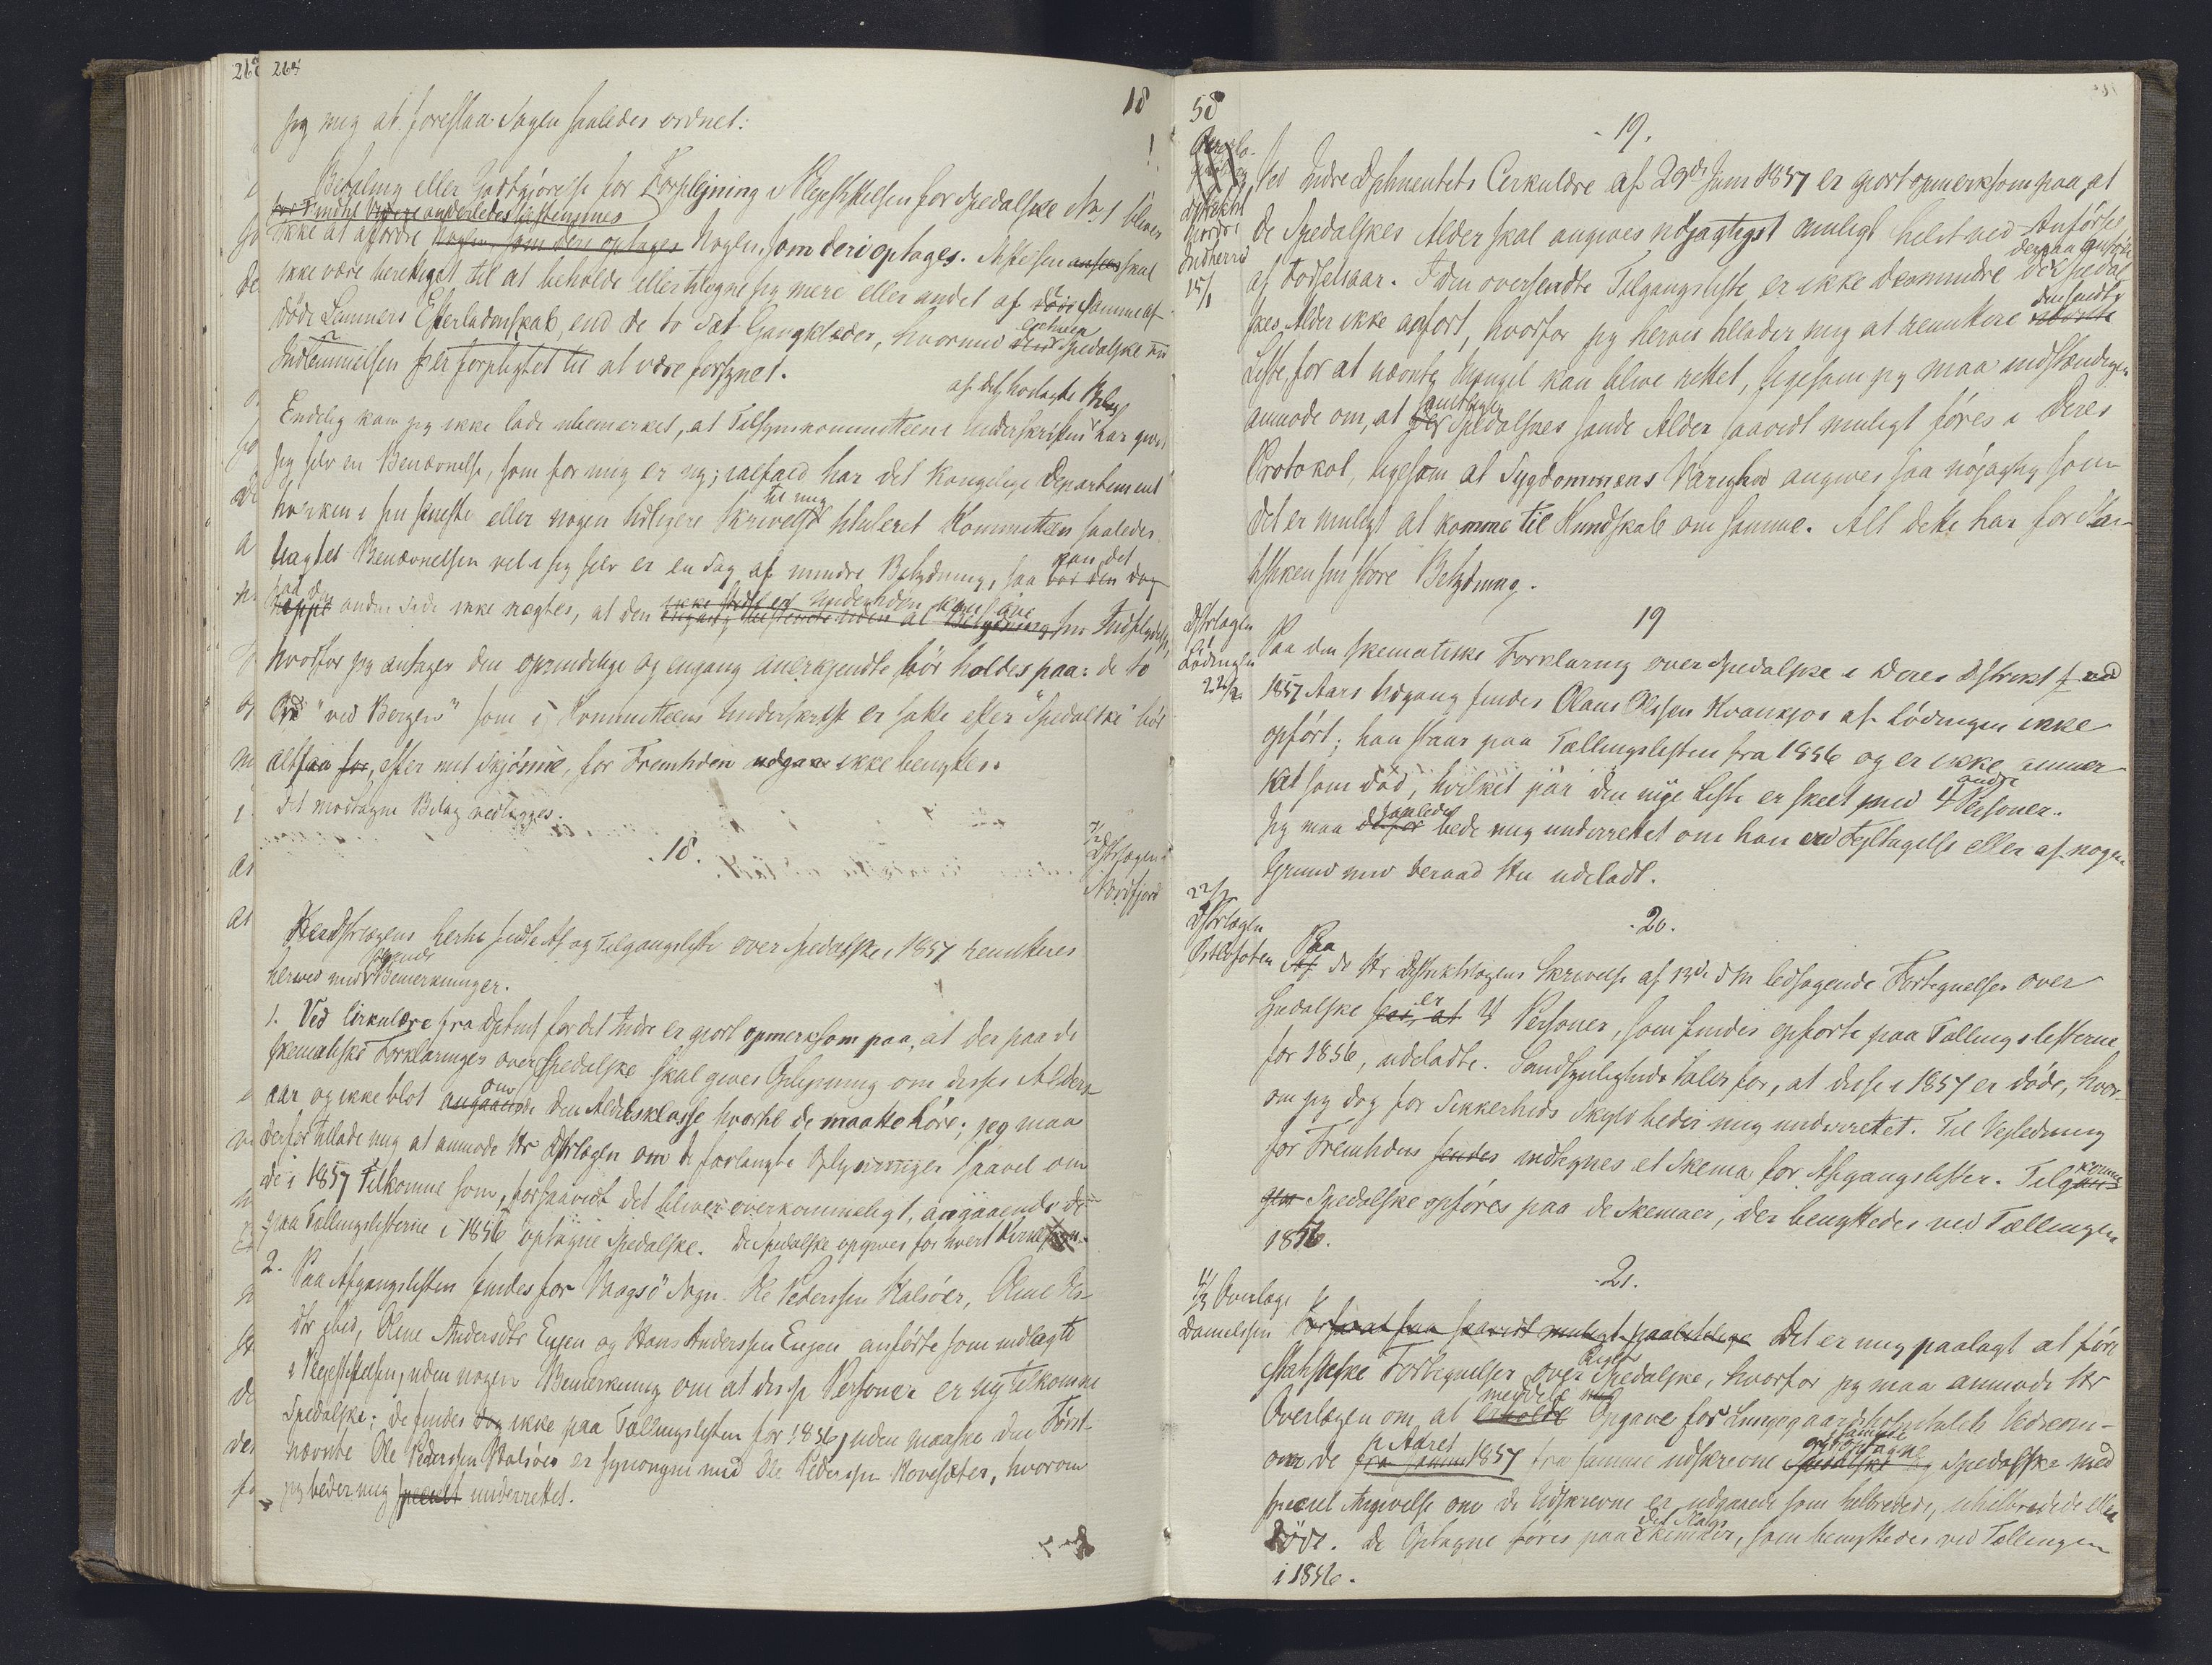 264
18
jeg mig at foreslaa Sagen saaledes ordnet:
Betaling eller Godtgjörelse for Forplejning i Plejestiftelsen for Spedalske No 1 bliver
ikke at affordre Nogen, som deri optages. Stiftelsen skal
ikke være berettiget til at beholde eller tilegne sig mere eller andet af samme af-
döde Lemmers Efterladenskab, end de to Sæt Gangklæder, hvormed Spedalske ved
Indlemmelsen er forpligtet til at være forsynet.
af det modtagne Bilag
Endelig kan jeg ikke lade ubemerket, at Tilsynskommitteens Underskriften har givet
sig selv en Benævnelse, som for mig er ny; ialfald har det Kongelige Departement
til mig
hverken i sin seneste eller nogen tidligere Skrivelse tituleret Kommitteen saaledes.
Uagtet Benævnelsen vel i sig selv er en Sag af mindre Betydning, saa kan det
paa den anden Side ikke nægtes, at den Indflydelse,
hvorfor jeg antager den oprindelige og engang anerkjendte bör holdes paa: de to
Ord "ved Bergen" som i Kommitteens Underskrift er satte efter "Spedalske" bör
altsaa for, efter mit Skjönne, for Fremtiden ikke benyttes.
Det modtagne Bilag vedlægges.
.18.
7/2
Dstrlægen i
Nordfjord
Dstrlægens hertil sendte Af og Tilgangsliste over Spedalske i 1857 remitteres
følgende
herved med Bemerkninger.
1. Ved Cirkulære fra Dptmt for det Indre er gjort opmerksom paa, at der paa de
skematiske Forklaringer over Spedalske skal gives Oplysning om disses Alders-
aar og ikke blot om den Aldersklasse hvortil de maatte höre; jeg maa
derfor tillade mig at anmode Hr Dstrlægen om de forlangte Oplysninger saavel om
de i 1857 Tilkomne som, forsaavidt det bliver overkommeligt, angaaende de
paa Tællingslisterne i 1856 optagne Spedalske. De Spedalske opgives for hvert Kirkesogn.
2. Paa Afgangslisten findes for Vaagsö Sogn. Ole Pedersen Halsöer, Oline
Dtr ibid, Oline Andersdtr Eugen og Hans Andersen Eugen anförte som indlagte
i Plejestiftelsen, uden nogen Bemerkning om at disse Personer er ny tilkomne
Spedalske; de findes ikke paa Tællingslisten for 1856, uden maaske den Först-
nævnte Ole Pedersen Halsöer er synonym med Ole Pedersen Hovesæter, hvorom
jeg beder mig underrettet.
58
. 19.
Distriktsl
Nordre
Indherred
15/1
Ved Indre Dptmentets Cirkulære af 23de Juni 1857 er gjort opmerksom paa at
de Spedalskes Alder skal angives nöjagtigst muligt helst ved Anförsel
af Födselsaar. I den oversendte Tilgangsliste er ikke desmindre de Spedal-
skes Alder ikke anfört, hvorfor jeg herved tillader mig at remittere den sendte
Liste, for at nævnte Mangel kan blive rettet, ligesom jeg maa indstændigen
anmode om, at samtlige Spedalskes sande Alder saavidt muligt föres i Deres
Protokol, ligesom at Sygdommens Varighed angives saa nöjagtig som
det er muligt at komme til Kundskab om samme. Alt dette har for Sta-
tistiken sin store Betydning.
19
Dstrlægen
i
Lödingen
22/2
Paa den skematiske Forklaring over Spedalske i Deres Distrikt ved
1857 Aars Udgang findes Olaus Olsen Kvankjos af Lödingen ikke
opfört; han staar paa Tællingslisten fra 1856 og er ikke anmer-
ket som död, hvilket paa den nye Liste er skeet med 4 andre Personer.
Jeg maa saaledes bede mig underrettet om han ved Fejltagelse eller af nogen
Grund med Beraad Hu udeladt.
22/2
Dstrlægen
Østlofoten
.20.
Paa de Hr Distriktslægens Skrivelse af 13de dM ledsagende Fortegnelser over
Spedalske er 4 Personer, som findes opförte paa Tællingslisterne
for 1856, udeladte. Sandsynligheden taler for, at disse i 1857 er döde, hvor-
om jeg dog for Sikkerheds Skyld beder mig underrettet. Til Vejledning
for Fremtiden vedlegges et Skema for Afgangslister. Tilkomne
Spedalske opföres paa de Skemaer, der benyttedes ved Tællingen
1856.
.21.
4/3 Overlæge
Danielssen
Det er mig paalagt at före
statistiske Fortegnelser over Rigets Spedalske, hvorfor jeg maa anmode Hr
Overlægen om at meddele mig Opgave for Lungegaardshospitalets Vedkom-
om de i Aaret 1857 fra samme udskrevne og i samme optagne Spedalske med
speciel Angivelse om de Udskrevne er udgaaede som helbredede, uhelbredede eller
döde. De Optagne föres paa det Slags Skemaer, som benyttedes ved Tællingen
i 1856.